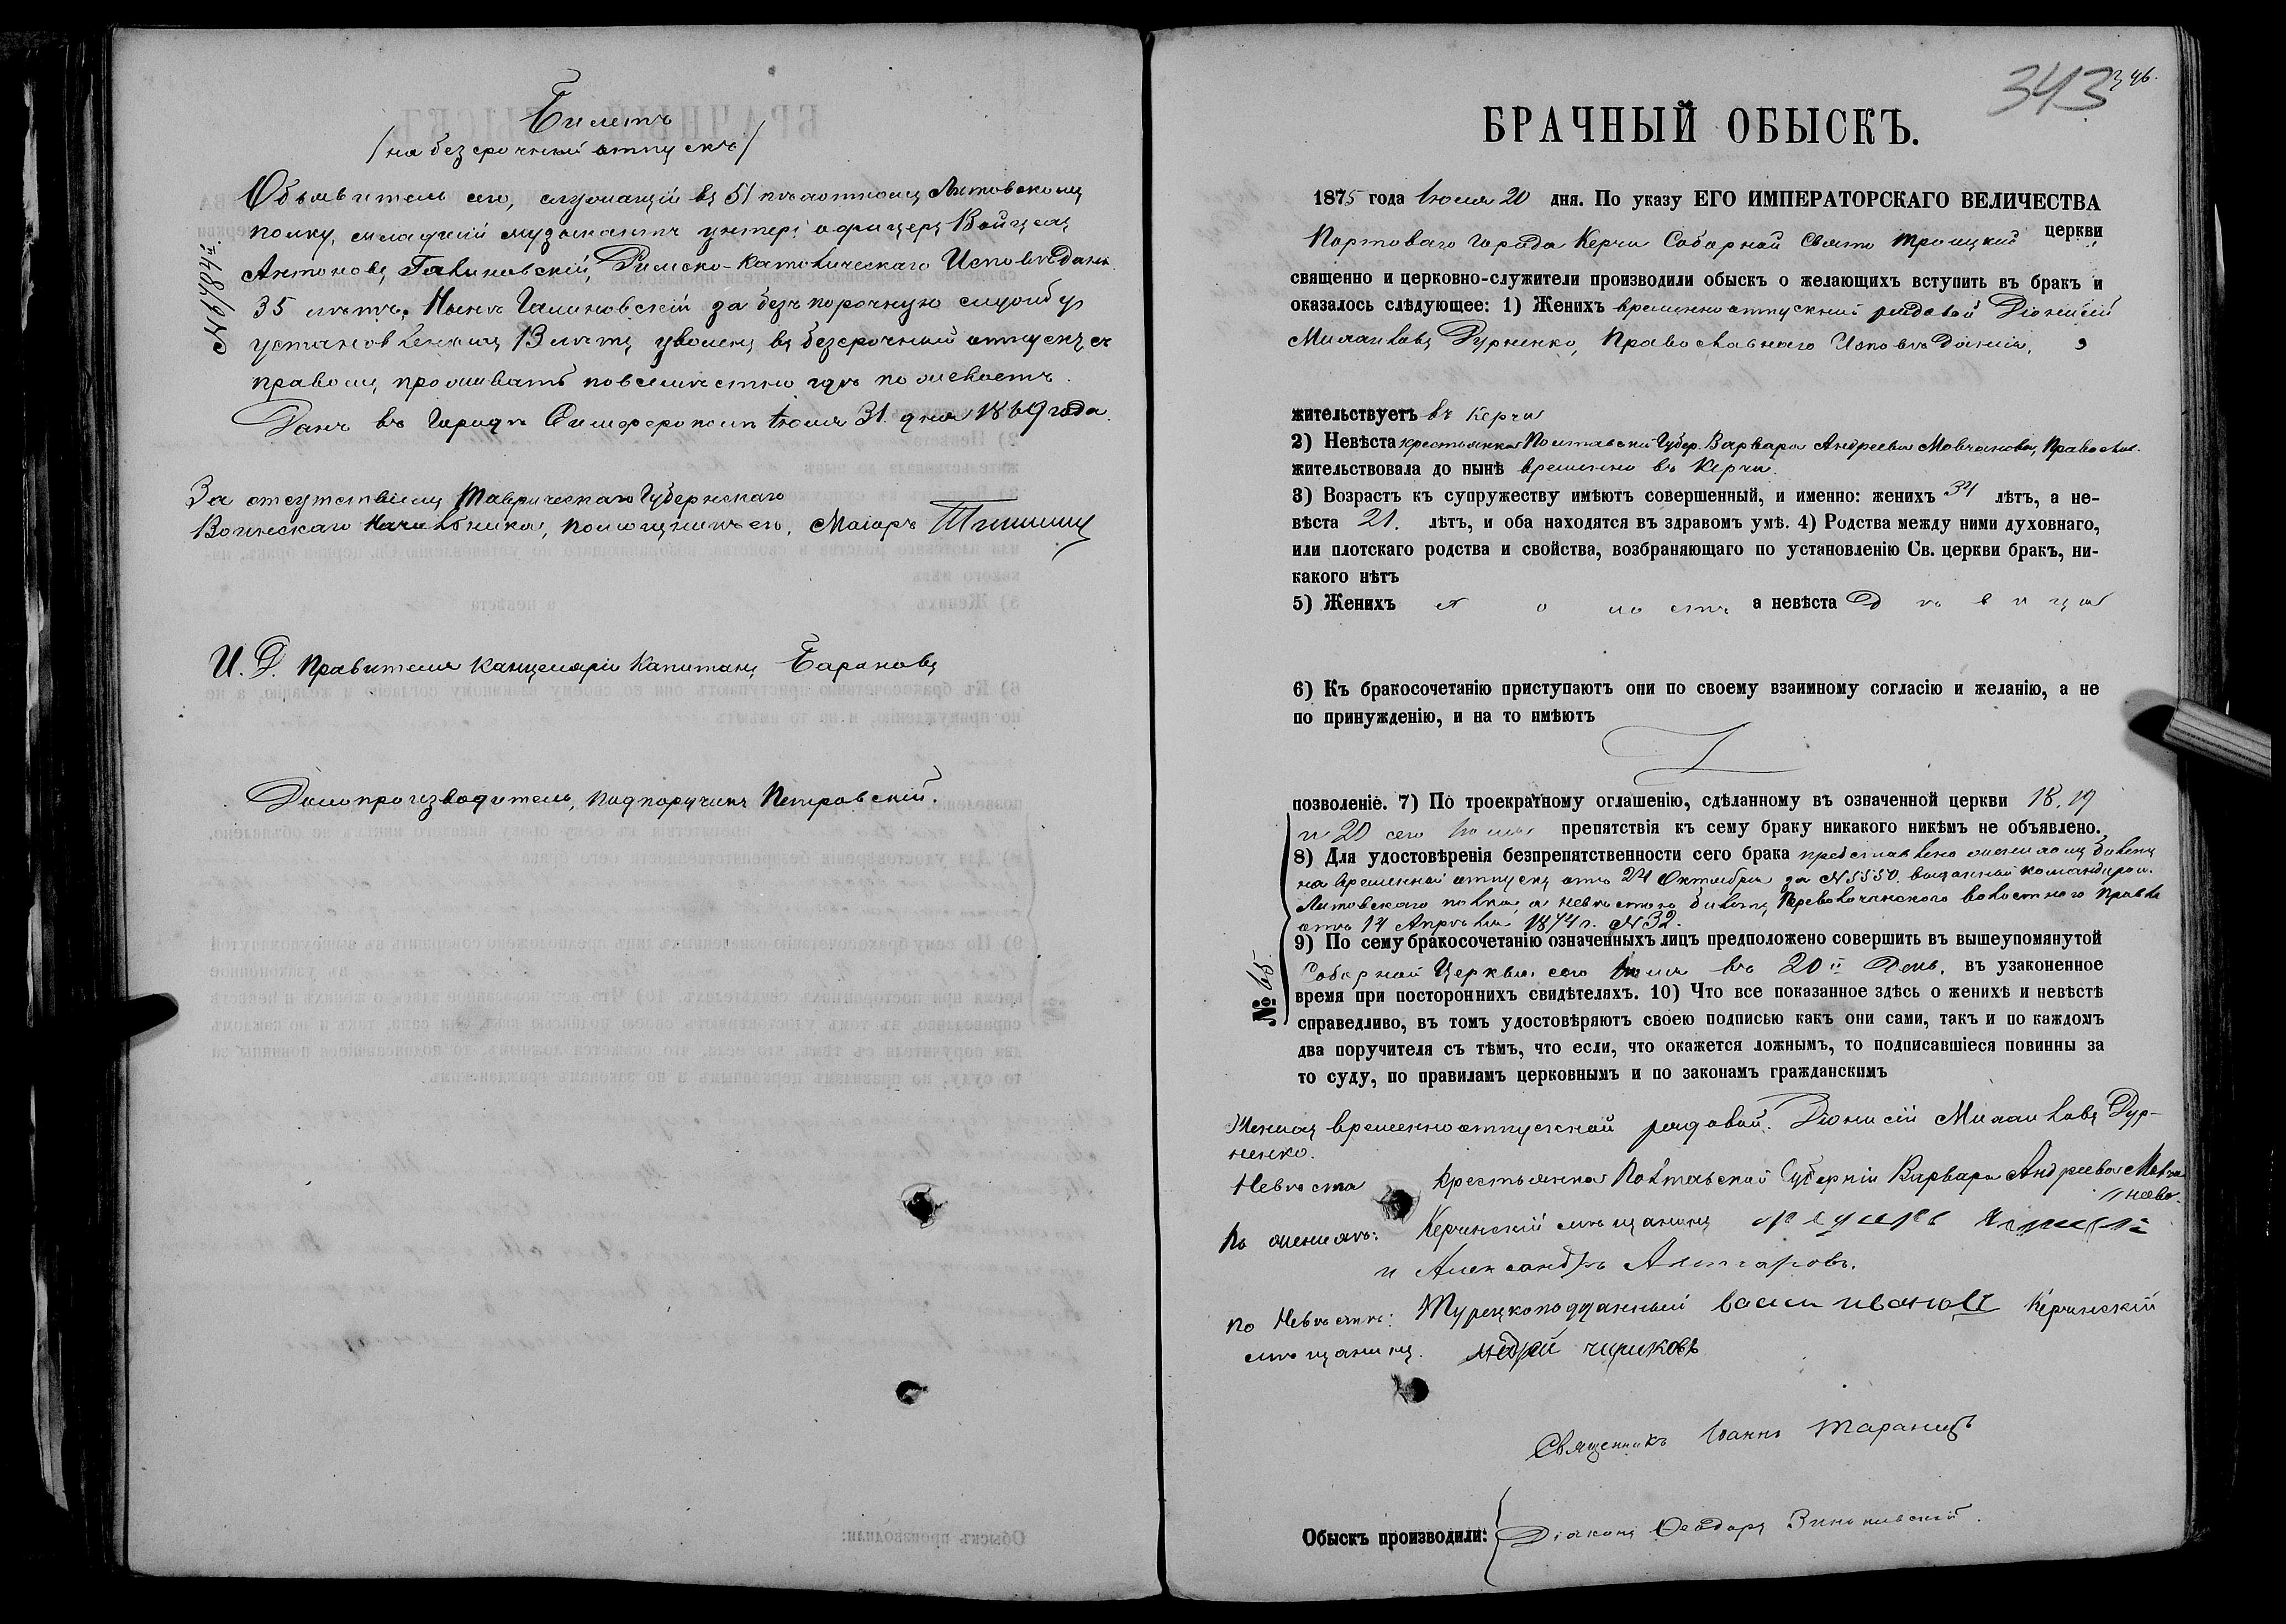 Билетъ
/на безсрочный отпускъ/
Объявитель сего, служащій въ 51 пѣхотномъ Литовскомъ
полку, младшій музыкантъ унтеръ офицеръ Войцехъ
Антоновъ Галиновскій, Римско-Католическаго Исповѣданія
35 лѣтъ. Нынѣ Галиновскій за безпорочную службу
установленныхъ 13 лѣтъ уволенъ въ безсрочный отпускъ съ
правомъ проживать повсемѣстно гдѣ пожелаетъ.
Данъ въ Городѣ Симферополѣ Іюля 31 дня 1869 года.
№ 1874
За отсутствіемъ Таврическаго Губернскаго
Воинскаго Начальника, помощникъ его, Маіоръ
И. Д. Правителя Канцеляріи Капитанъ Барановъ
Дѣлопроизводитель, Подпоручикъ Петровскій.
343 346.
БРАЧНЫЙ ОБЫСКЪ.
1875 года Іюля 20 дня. По указу ЕГО ИМПЕРАТОРСКАГО ВЕЛИЧЕСТВА
Портоваго Города Керчи Соборной Свято Троицкой церкви
священно и церковно-служители производили обыскъ о желающихъ вступить въ бракъ и
оказалось слѣдующее: 1) Женихъ временноотпускной рядовой Діонисій
Михайловъ Дурненко, Православнаго Исповѣданія,
жительствуетъ въ Керчи
2) Невѣста крестьянка Полтавской Губер. Варвара Андреева Мовчанова, Православ.
жительствовала до нынѣ временно въ Керчи.
3) Возрастъ къ супружеству имѣютъ совершенный, и именно: женихъ 34 лѣтъ, а не-
вѣста 21. лѣтъ, и оба находятся въ здравомъ умѣ. 4) Родства между ними духовнаго,
или плотскаго родства и свойства, возбраняющаго по установленію Св. церкви бракъ, ни-
какого нѣтъ
5) Женихъ холостъ а невѣста Дѣвица
6) Къ бракосочетанію приступаютъ они по своему взаимному согласію и желанію, а не
по принужденію, и на то имѣютъ
позволеніе. 7) По троекратному оглашенію, сдѣланному въ означенной церкви 18, 19
и 20 сего Іюля препятствія къ сему браку никакого никѣмъ не объявлено.
8) Для удостовѣренія безпрепятственности сего брака представлено женихомъ билетъ
на временной отпускъ отъ 24 Октября за № 5550. выданный командиром.
Литовскаго полка, а невѣстою билетъ Переволочанского волостного Правле
отъ 14 Апрѣля 1874 г. № 32.
9) По сему бракосочетанію означенныхъ лицъ предположено совершить въ вышеупомянутой
Соборной Церкви сего Іюля въ 20й день. въ узаконенное
время при постороннихъ свидѣтеляхъ. 10) Что все показанное здѣсь о женихѣ и невѣстѣ
справедливо, въ томъ удостовѣряютъ своею подписью какъ они сами, такъ и по каждомъ
два поручителя съ тѣмъ, что если, что окажется ложнымъ, то подписавшіеся повинны за
то суду, по правиламъ церковнымъ и по законамъ гражданскимъ
№ 65
Женихъ временноотпускной рядовой. Діонисій Михайловъ Дур-
ненко.
Невѣста Крестьянка Полтавской Губерніи Варвара Андреева Мовча
нова.
По женихѣ: Керчинскій мѣщанинъ
и Александръ
по Невѣстѣ: Турецкоподданный васили иванов Керчинскій
мѣщанинъ. чириковъ
Священникъ Іоаннъ
Обыскъ производили: Діаконъ Ѳеодоръ